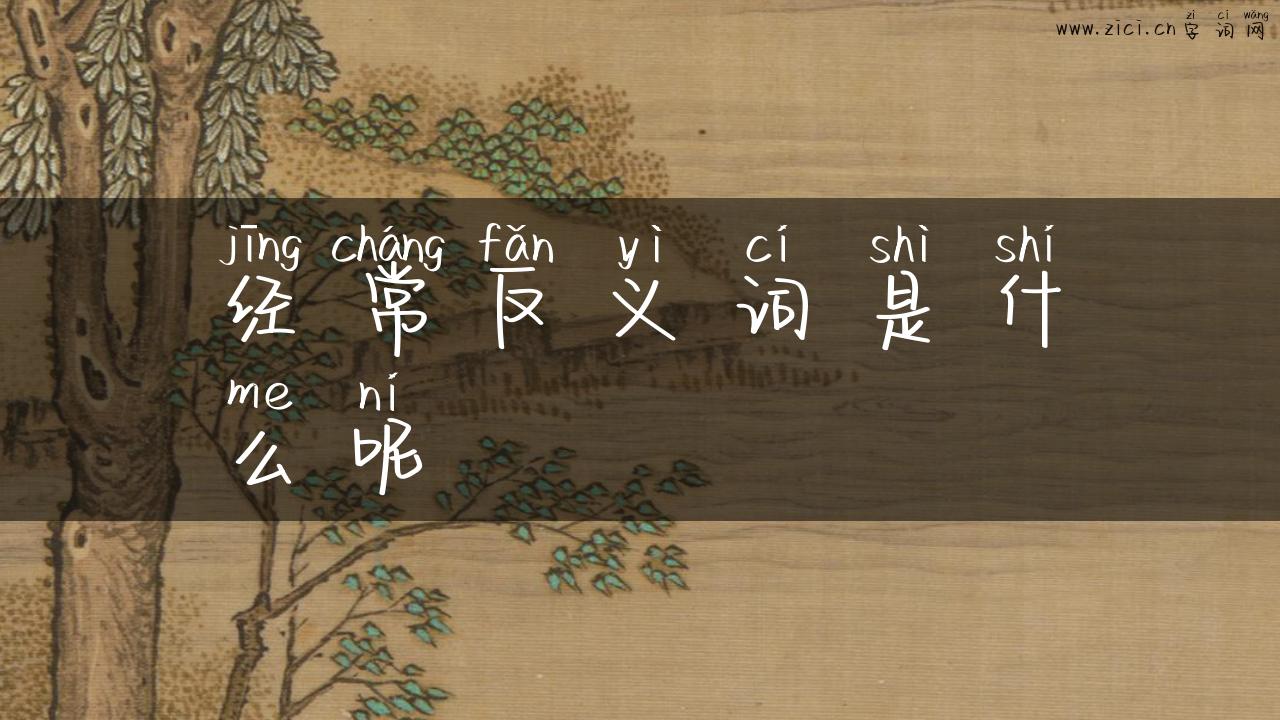 zì cí wǎng
www.zici.cn 字 词 网
jīng cháng fǎn yì cí shì shí
经 常 反 义 词 是 什
me ní
么 呢